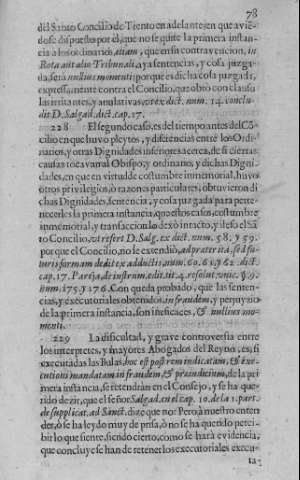 78
del Santo Concilio de Trento en adelante; en que avién-
dose dispuesto por él, que no se quite la primera instan-
cia à los ordinarios, etiam, que en su contravencion, in
Rota aut alio Tribunali, aya sentencias, y cosa juzga-
da, serà nullius momenti; porque es dicha cosa juzgada,
expressamente contra el Concilio, que obrò con clausu
las irritantes, y anulativas, vt ex dict. num. 14. conclu-
dit D. Salgad. dict. cap. 17.
228 El segundo caso, es del tiempo antes del Cõ-
cilio en que huvo pleytos, y diferencias entre los Ordi-
narios, y otras Dignidades inferiores acerca, de si ciertas
causas tocavan al Obispo, y ordinario, y dichas Digni-
dades, en que en virtud de costumbre inmemorial, huvo
otros privilegios, ò razones particulares, obtuvieron di
chas Dignidades, sentencia, y cosa juzgada para perte-
necerles la primera instancia, que estos casos, costumbre
inmemorial, y transaccion lo dexò intacto, y ileso el Sã
to Concilio, vt refert D. Salg. ex dict. num. 58. y 59.
porque el Concilio, no se extendiò, ad præterita, sed fu-
turis formam dedit ex adductis num. 60. 61. y 62. dict.
cap. 17. Pareja, de instrum. edit. tit. 4. resolut. vnic. §. 9.
num. 175. y 176. Con que da probado, que las senten-
cias, y executoriales obtenidos, in fraudem, y perjuyzio
de la primera instancia, son ineficaces, & nullius mo-
menti.
229 La dificultad, y grave controversia entre
los interpretes, y mayores Abogados del Reyno, es, si
executadas las Bulas, hoc est post rem iudicatam, & exe-
cutionis mandatam in fraudem, & præiudicium, de la pri
mera instancia, se retendràn en el Consejo, y se ha que-
rido dezir, que el señor Salgad. en el cap. 10. de la 1. part.
de supplicat. ad Sanct. dize que no: Pero à nuestro enten
der, ò se ha leydo muy de prisa, ò no se ha querido perci-
bir lo que siente, siendo cierto, como se harà evidencia,
que concluye se han de retener los executoriales execu-
ta-